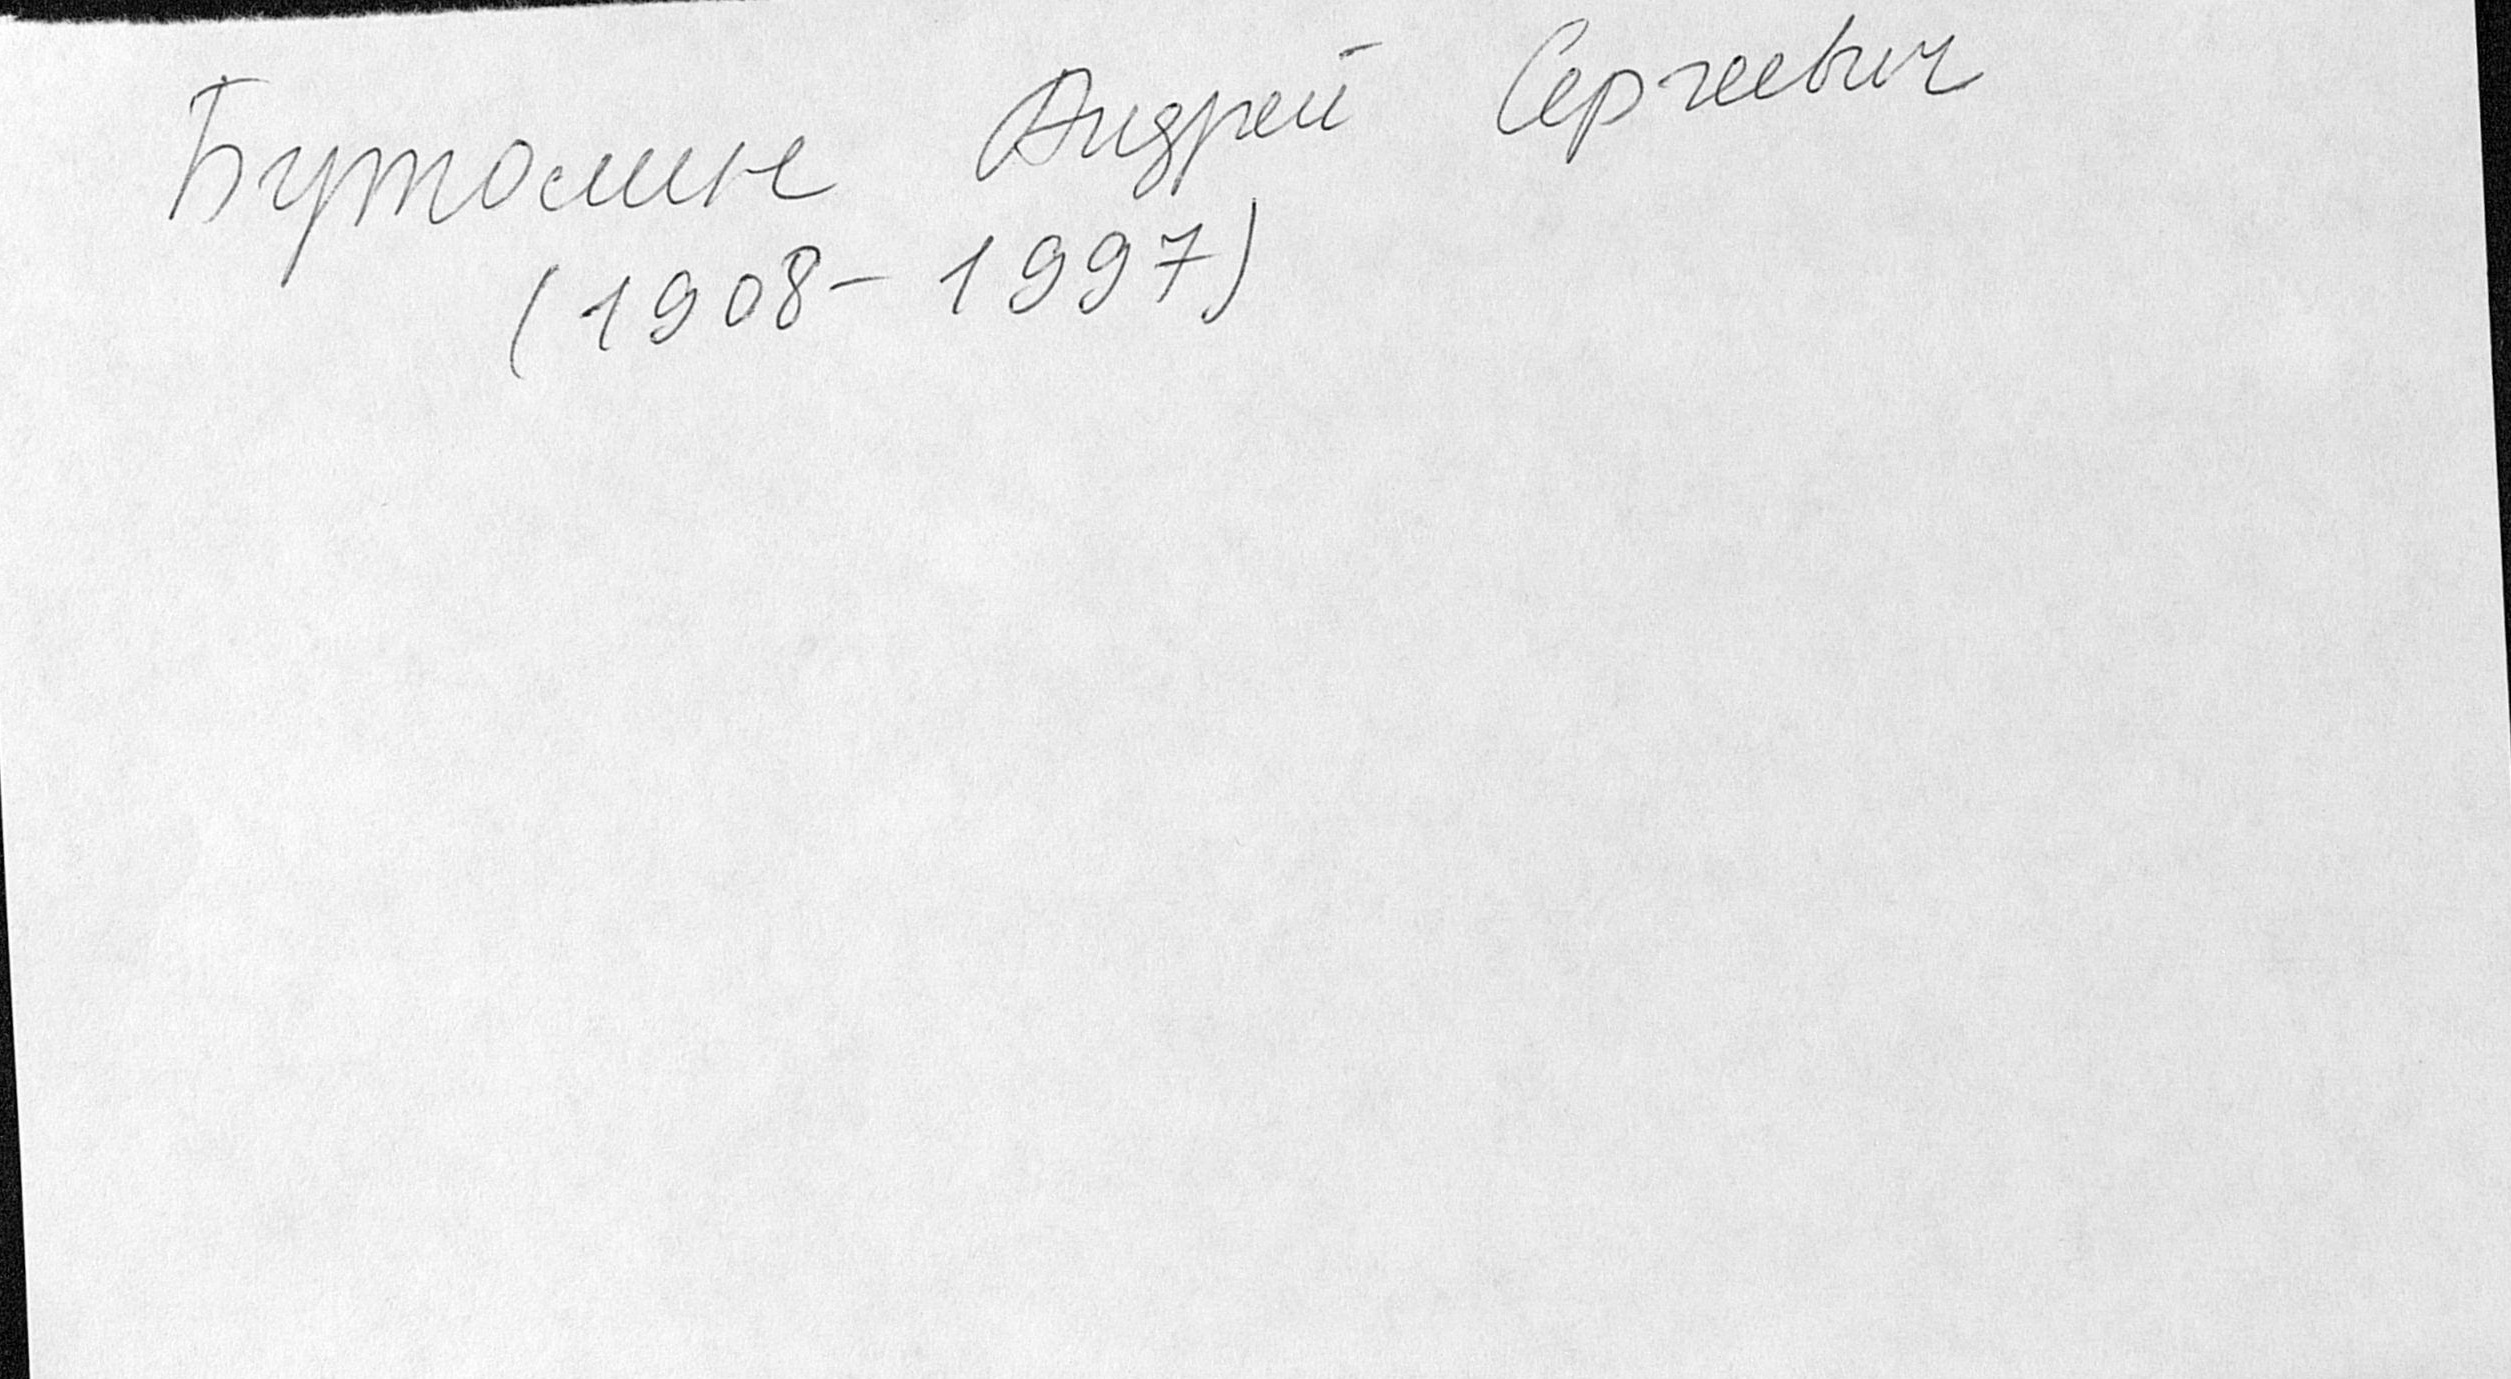 Бутолин Андрей Сергеевич
(1908-1997)